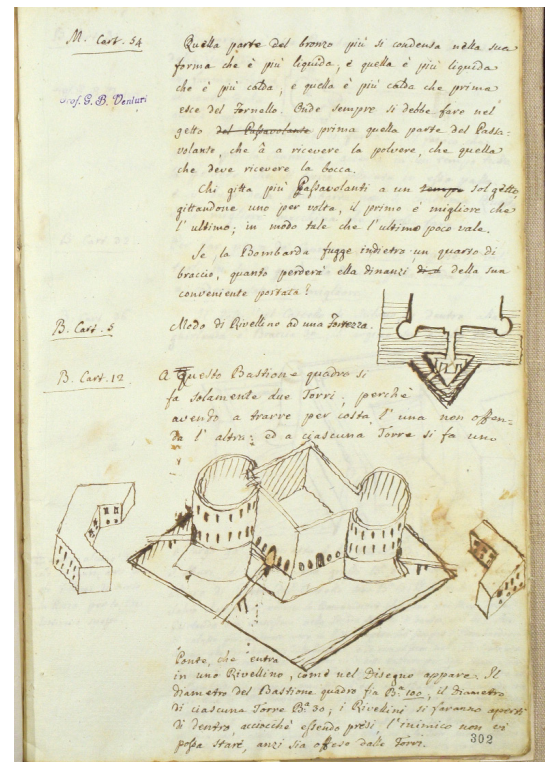 M. Cart. 54
Prof. G. B. Venturi
Quella parte del bronzo più si condensa nella sua
forma che è più liquida, e quella è più liquida
che è più calda, e quella è più calda che prima
esce del Fornello. Onde sempre si debbe fare nel
getto del Passavolante prima quella parte del Passa=
volante, che à a ricevere la polvere, che quella
che deve ricevere la bocca.
Chi gitta più Passavolanti a un sempr sol getto,
gittandone uno per volta, il primo è migliore che
l'ultimo; in modo tale che l'ultimo poco vale.
Se la Bombarda fugge indietro un quarto di
braccio, quanto perderà ella dinanzi della sua
conveniente portata?
B. Cart. 5
Modo di Rivellino ad una Forrezza.
B. Cart. 12
A Questo Bastione quadro si
fa solamente due Torri, perchè
avendo a trarre per costa l'una non offen=
da l'altra: ed a ciascuna Torre si fa uno
Ponte, che entra
in uno Rivellino, come nel Disegno appare. Il
diametro del Bastione quadro fia B.ª 100, il diametro
di ciascuna Torre B.ª 30; i Rivellini si faranno aperti
di dentro, acciocchè essendo presi, l'inimico non vi
possa stare, anzi sia offeso dalle Torri.
302